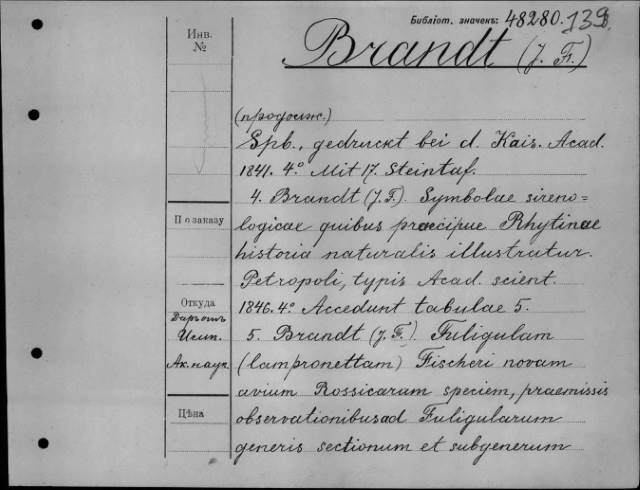 Библіот. значекъ: 48280. 139.
Brandt (J. F.)
Инв.
№
(продолж.)
Spb., gedruckt bei d. Kais. Acad.
1841. 4º Mit 17. Steintaf.
4. Brandt (J. F.) Symbolae sireno-
logicae quibus praecipue Rhytinae
historia naturalis illustratur.
Petropoli, typis Acad. scient.
1846. 4º Accedunt tabulae 5.
5. Brandt (J. F.) Fuligulam
(lampronettam) Fischeri novam
avium Rossicarum speciem, praemissis
observationibus ad Fuligularum
generis sectionum et subgenerum
По заказу
Откуда
Даръ отъ
Имп.
Ак. наук
Цѣна